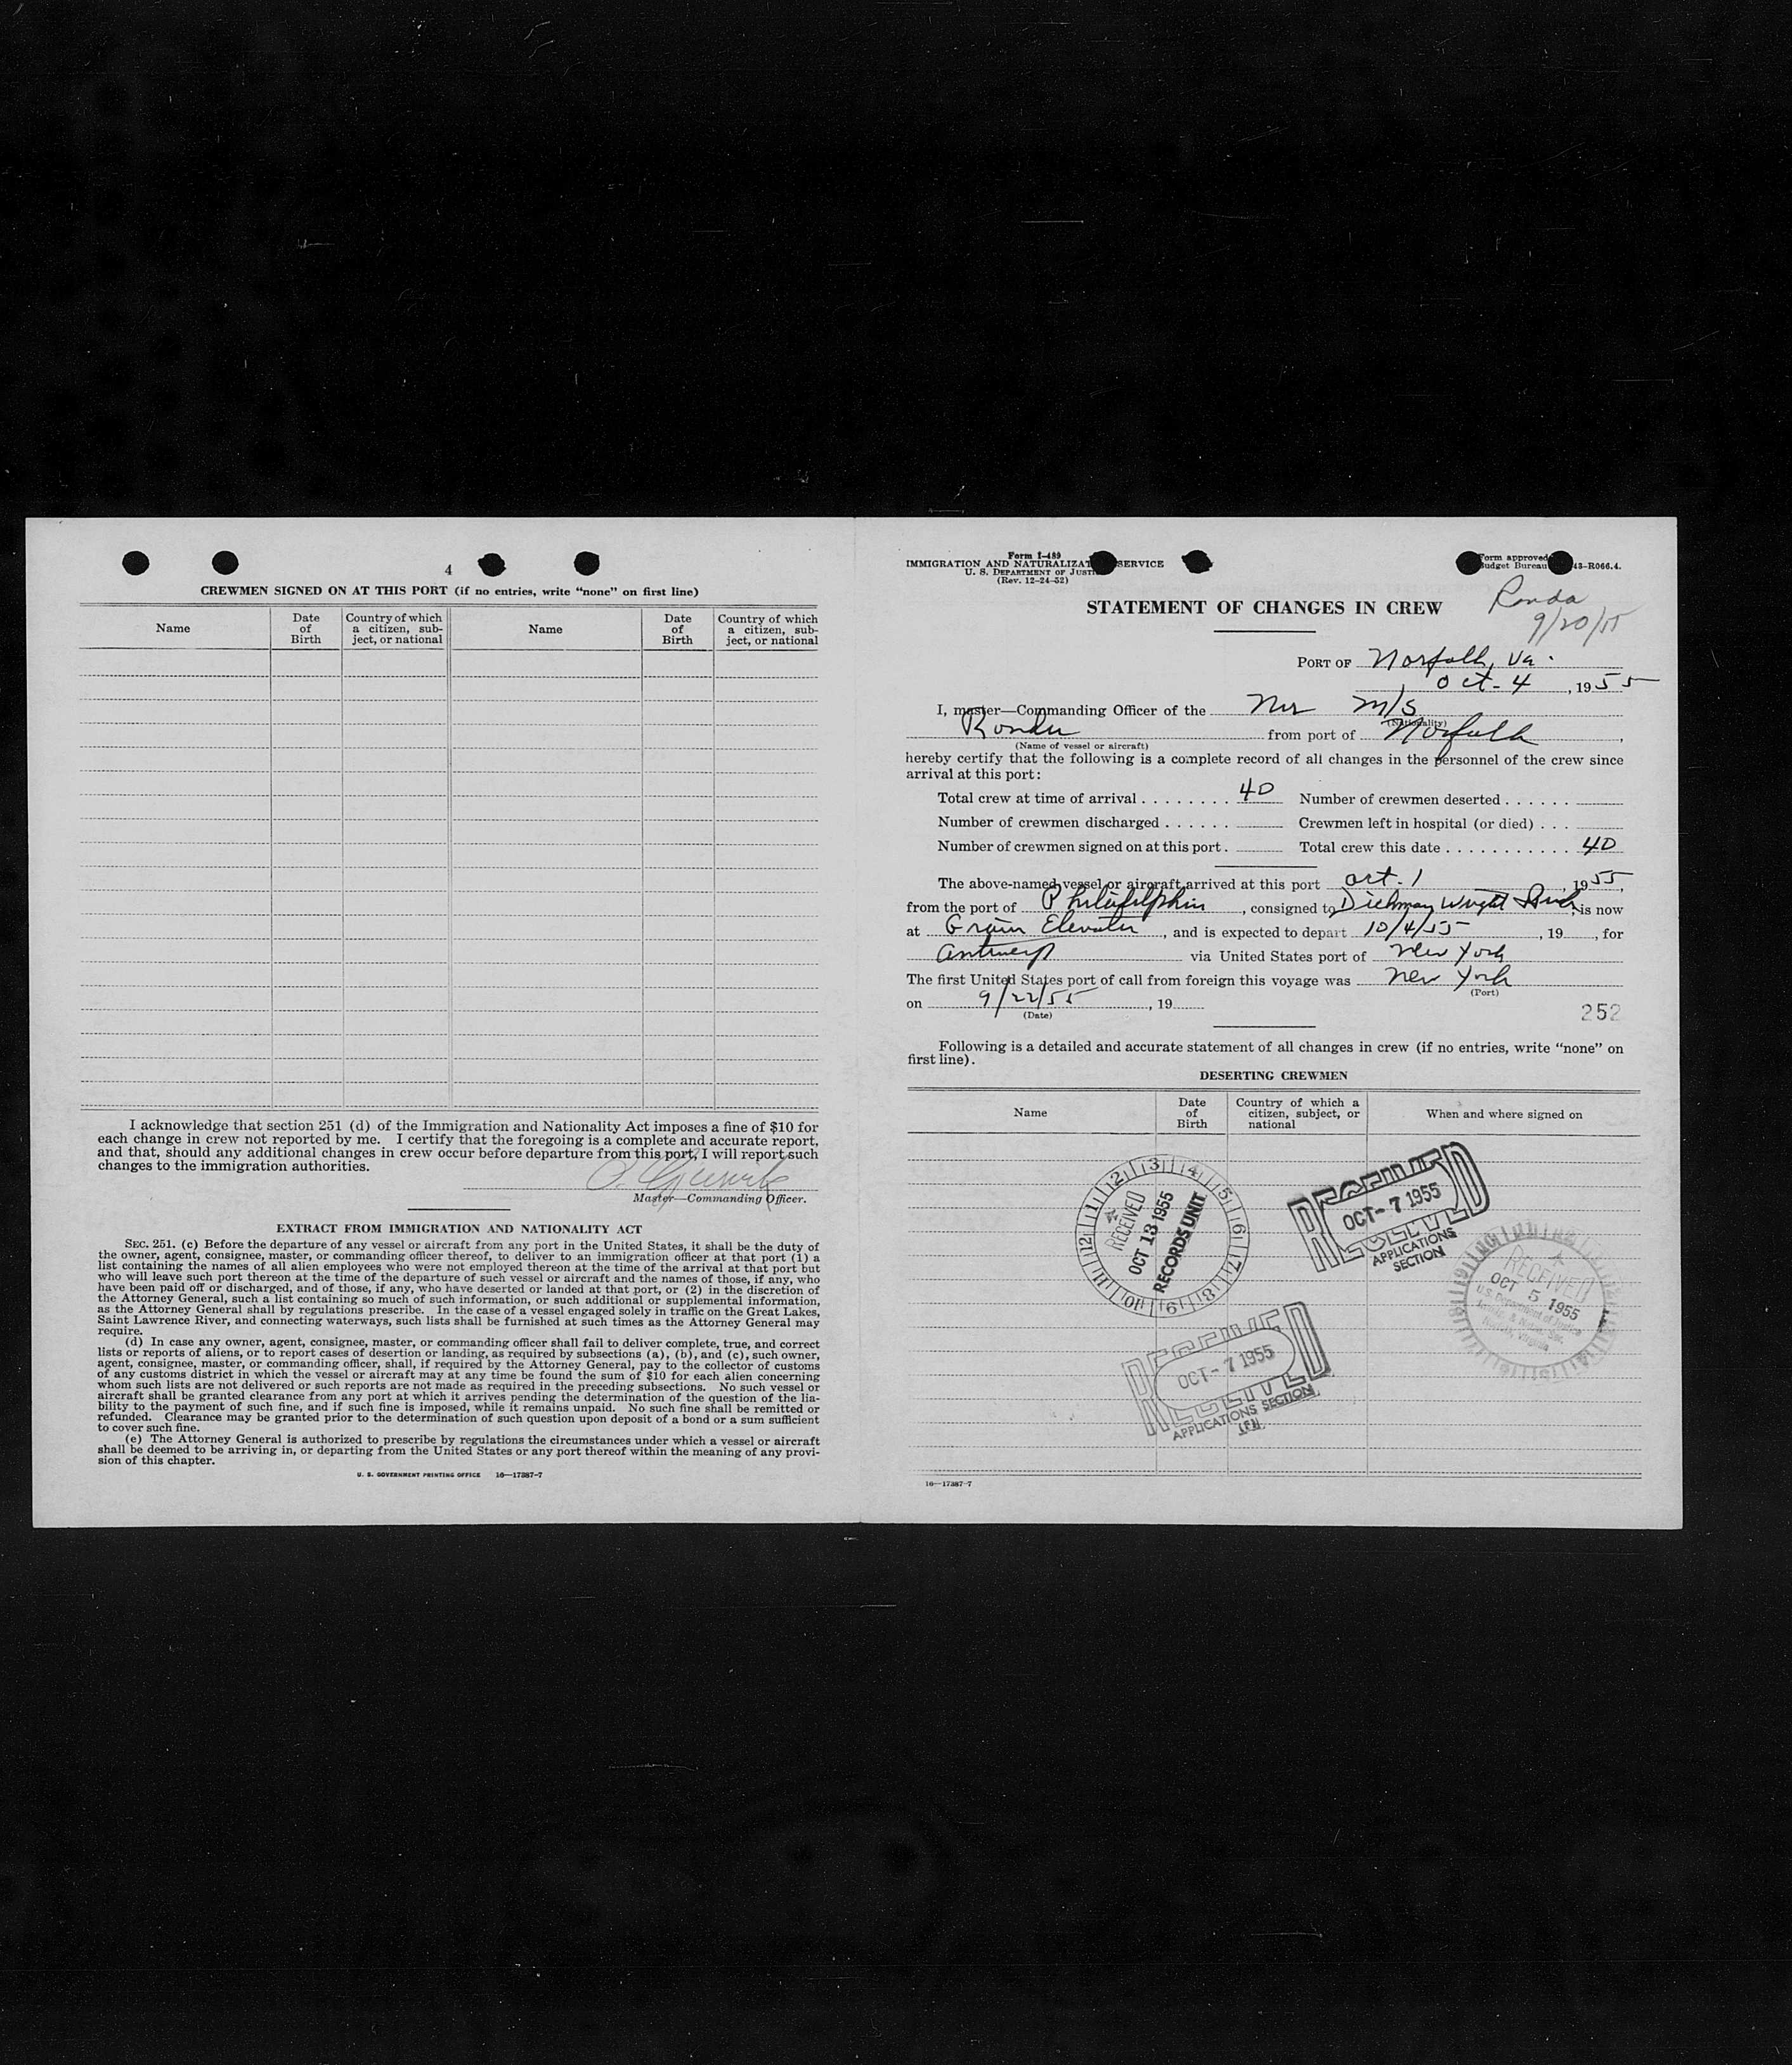 4
CREWMEN SIGNED ON AT THIS PORT (if no entries, write “none” on first line)
Name
Date of Birth
Country of which a citizen, sub-ject, or national
Name
Date of Birth
Country of which a citizen, sub-ject, or national
I acknowledge that section 251 (d) of the Immigration and Nationality Act imposes a fine of $10 for
each change in crew not reported by me. I certify that the foregoing is a complete and accurate report,
and that, should any additional changes in crew occur before departure from this port, I will report such
changes to the immigration authorities.
Master—Commanding Officer.
EXTRACT FROM IMMIGRATION AND NATIONALITY ACT
SEC. 251. (c) Before the departure of any vessel or aircraft from any port in the United States, it shall be the duty of
the owner, agent, consignee, master, or commanding officer thereof, to deliver to an immigration officer at that port (1) a
list containing the names of all alien employees who were not employed thereon at the time of the arrival at that port but
who will leave such port thereon at the time of the departure of such vessel or aircraft and the names of those, if any, who
have been paid off or discharged, and of those, if any, who have deserted or landed at that port, or (2) in the discretion of
the Attorney General, such a list containing so much of such information, or such additional or supplemental information,
as the Attorney General shall by regulations prescribe. In the case of a vessel engaged solely in traffic on the Great Lakes,
Saint Lawrence River, and connecting waterways, such lists shall be furnished at such times as the Attorney General may
require.
(d) In case any owner, agent, consignee, master, or commanding officer shall fail to deliver complete, true, and correct
lists or reports of aliens, or to report cases of desertion or landing, as required by subsections (a), (b), and (c), such owner,
agent, consignee, master, or commanding officer, shall, if required by the Attorney General, pay to the collector of customs
of any customs district in which the vessel or aircraft may at any time be found the sum of $10 for each alien concerning
whom such lists are not delivered or such reports are not made as required in the preceding subsections. No such vessel or
aircraft shall be granted clearance from any port at which it arrives pending the determination of the question of the lia-
bility to the payment of such fine, and if such fine is imposed, while it remains unpaid. No such fine shall be remitted or
refunded. Clearance may be granted prior to the determination of such question upon deposit of a bond or a sum sufficient
to cover such fine.
(e) The Attorney General is authorized to prescribe by regulations the circumstances under which a vessel or aircraft
shall be deemed to be arriving in, or departing from the United States or any port thereof within the meaning of any provi-
sion of this chapter.
U. S. GOVERNMENT PRINTING OFFICE 16—17387-7
Form I-489
IMMIGRATION AND NATURALIZAT SERVICE
U. S. DEPARTMENT OF JUSTI
(Rev. 12-24-52)
Form approved
Budget Bureau 43-R066.4.
Ronda
9/20/55
STATEMENT OF CHANGES IN CREW
PORT OF Norfolk, Va.
Oct-4, 1955
I, master—Commanding Officer of the Nor M/S
(Nationality)
Ronda from port of Norfolk,
(Name of vessel or aircraft)
hereby certify that the following is a complete record of all changes in the personnel of the crew since
arrival at this port:
Total crew at time of arrival . . . . . . . . 40 Number of crewmen deserted . . . . . .
Number of crewmen discharged . . . . . . Crewmen left in hospital (or died) . . .
Number of crewmen signed on at this port . Total crew this date . . . . . . . . . . . 40
The above-named vessel or aircraft arrived at this port Oct. 1, 1955,
from the port of Philadelphia, consigned to Dichmay Wright, is now
at Grain Elevator, and is expected to depart 10/4/55, 19 , for
Antwerp via United States port of New York
The first United States port of call from foreign this voyage was New York
(Port)
on 9/22/55, 19
(Date)
252
Following is a detailed and accurate statement of all changes in crew (if no entries, write “none” on
first line).
DESERTING CREWMEN
Name
Date of Birth
Country of which a citizen, subject, or national
When and where signed on
1 2 3 4 5 6 7 8 9 10 11 12
RECEIVED
OCT 13 1955
RECORDS UNIT
RECEIVED
OCT - 7 1955
RECEIVED
APPLICATIONS
SECTION
RECEIVED
OCT 5 1955
U.S. Department of Justice
RECEIVED
OCT - 7 1955
RECEIVED
APPLICATIONS SECTION
16—17387-7